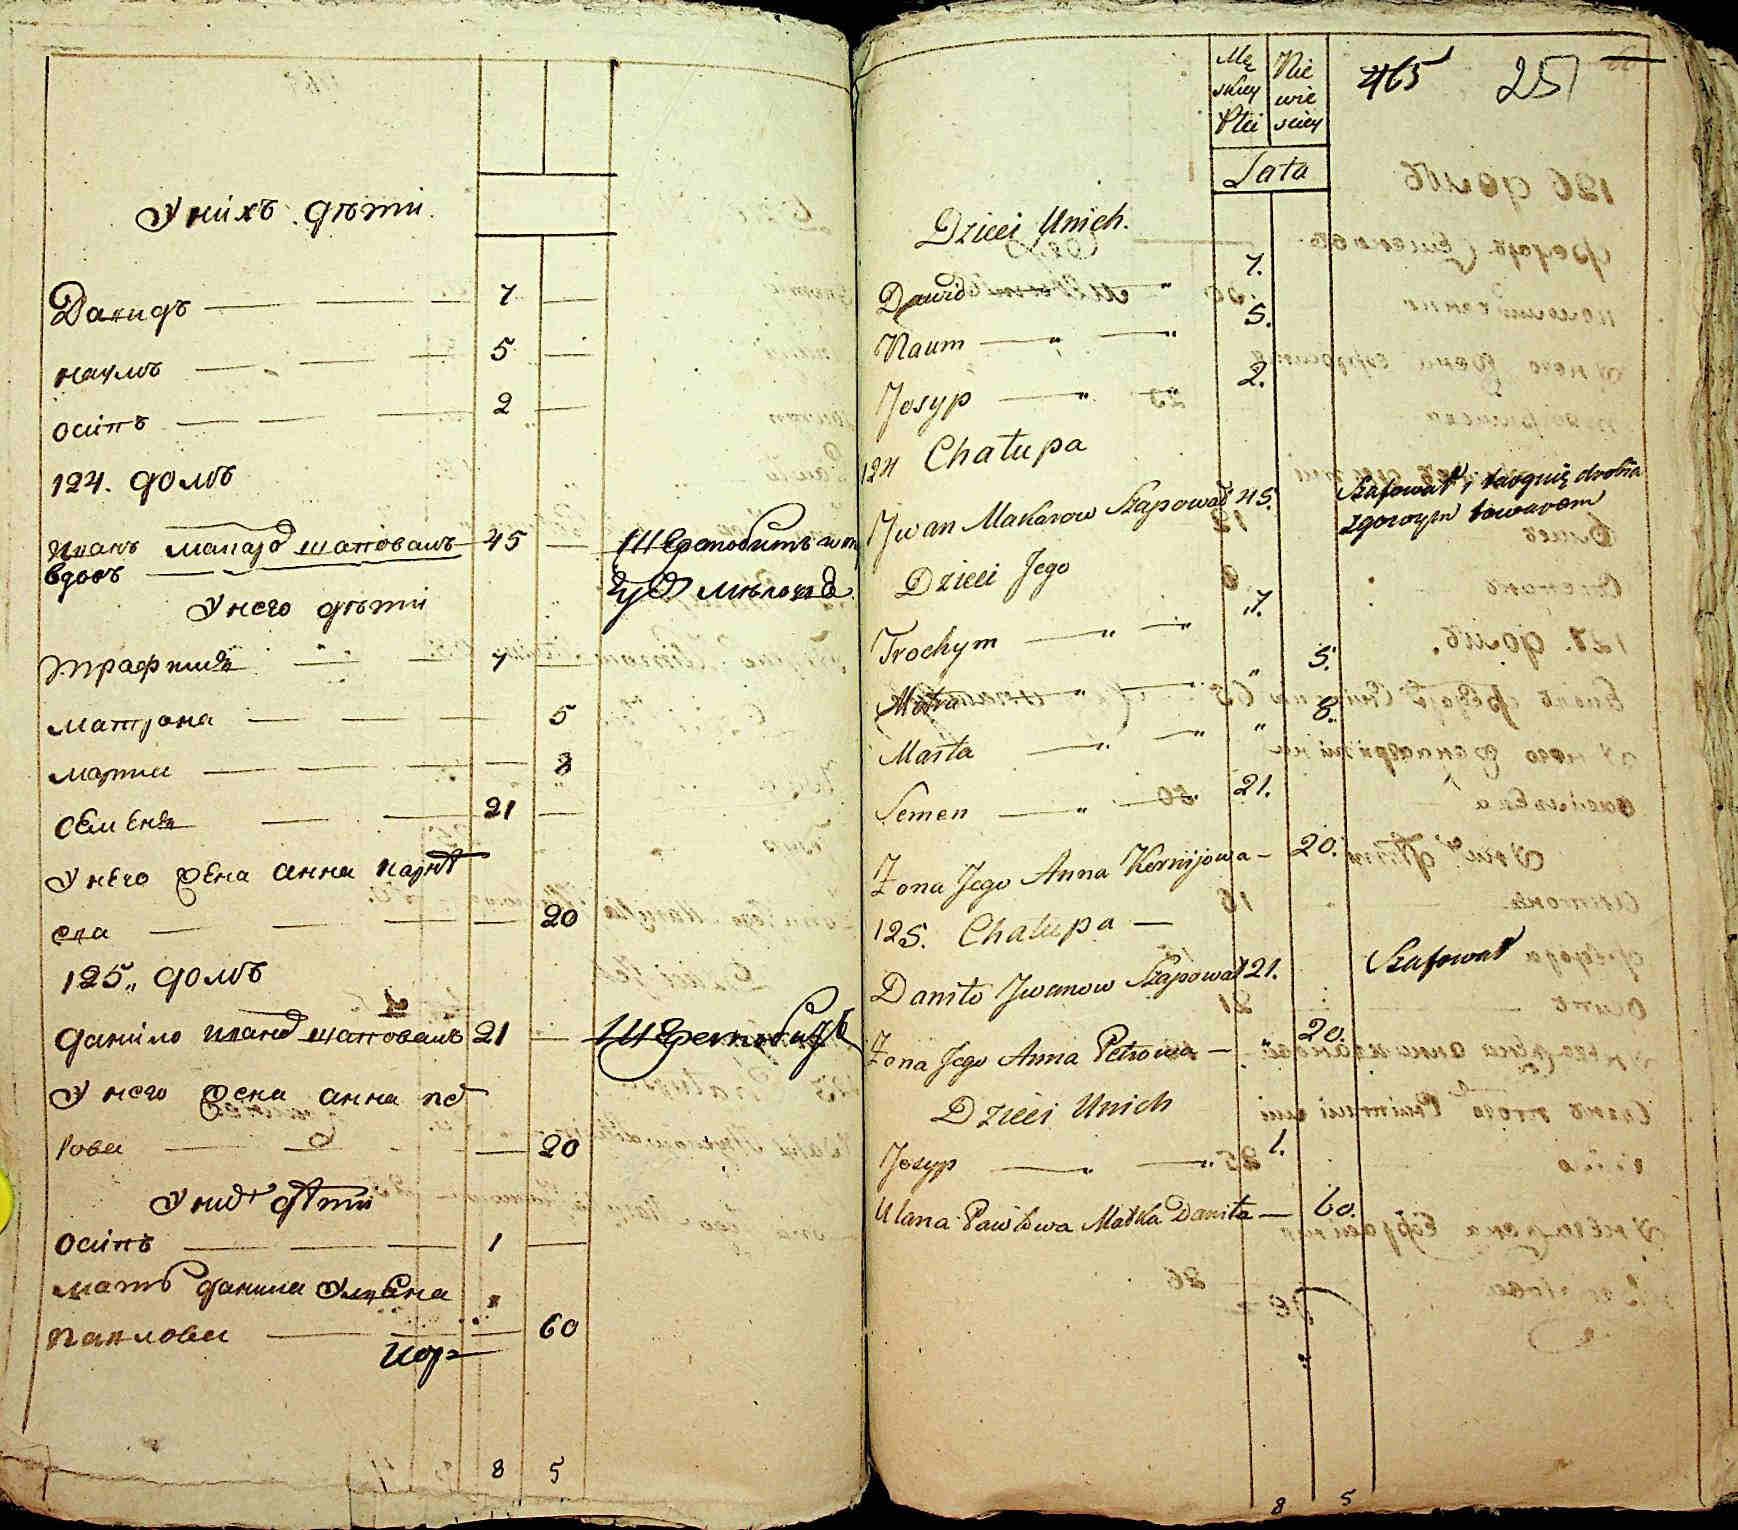 У нихъ дѣти.
Давидъ — — — 7 —
наумъ — — — 5 —
осипъ — — — 2 —
124. домъ
Иванъ макаро шаповалъ 45 —
вдовъ —
У него дѣти
трафимъ — — 7 —
матрона — — — 5
марта — — — — 3
семенъ — — 21 —
У него жена анна карнѣ
ева — — — — 20
125„ домъ
данило ивано шаповалъ 21 —
У него жена анна пет
рова — — — — 20
У них дѣти
осипъ — — — 1 —
мать данила Улияна
павлова — — — 60
8 5
Mę Nie
skiey wie
Płci sciey
465 251
Lata
Dzieci Unich.
Dawid — „ 7.
Naum — „ — „ 5.
Josyp — „ — „ 2.
124 Chałupa
Jwan Makarow Szapował 45.
Szafował i targuię drobia
zgowym towarem
Dzieci Jego
Trochym — „ — „ 7.
Motra — „ — „ „ 5.
Marta — „ — „ „ 3.
Semen — „ — „ 21.
Żona Jego Anna Kornijowa — 20.
125. Chałupa —
Daniło Jwanow Szapował 21.
Szafował
Żona Jego Anna Petrowa — „ 20.
Dzieci Unich
Josyp — „ — „ 1.
Ulana Pawłowa Matka Daniła — 60.
8 5